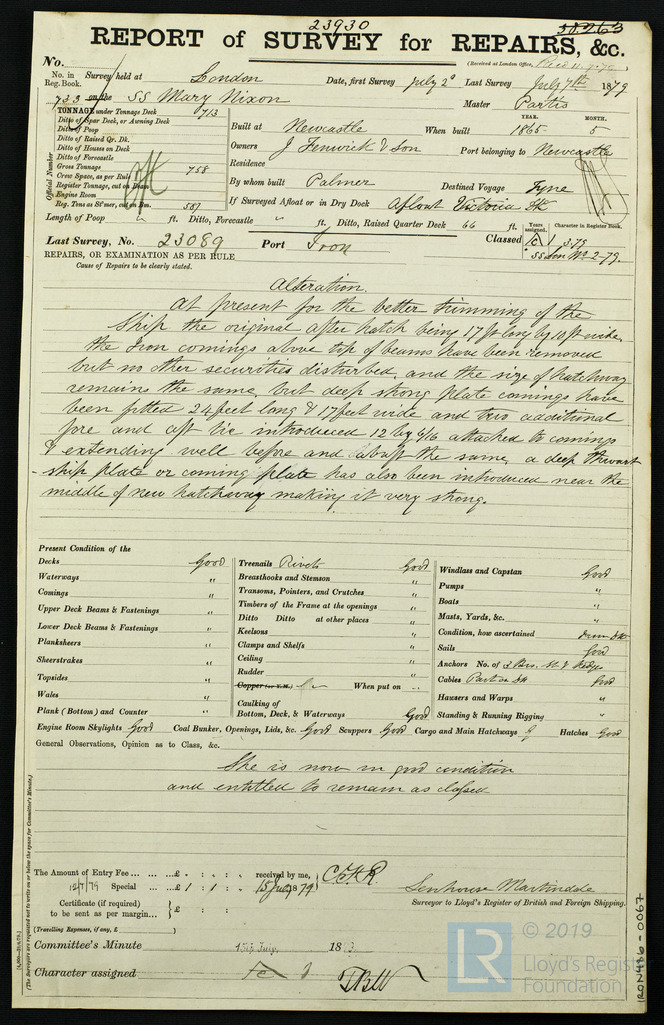 23930
REPORT of SURVEY for REPAIRS, &c.
(Received at London Office,
No.
No. in Reg. Book. Survey held at London Date, first Survey July 2d Last Survey July 7th 1879
733 on the SS Mary Nixon Master Partis
TONNAGE under Tonnage Deck 713
Ditto of Spar Deck, or Awning Deck
Ditto of Poop
Ditto of Raised Qr. Dk.
Ditto of Houses on Deck
Ditto of Forecastle
Gross Tonnage 758
Crew Space, as per Rule
Register Tonnage, cut on Beam
Engine Room
Reg. Tons as St'mer, cut on Bm. 587
Official Number
YEAR. MONTH.
Built at Newcastle When built 1865 5
Owners J Fenwick & Son Port belonging to Newcastle
Residence
By whom built Palmer Destined Voyage Tyne
If Surveyed Afloat or in Dry Dock Afloat Victoria Dk
Length of Poop " ft. Ditto, Forecastle " ft. Ditto, Raised Quarter Deck 66 ft.
Years assigned. Character in Register Book.
Last Survey, No. 23089 Port Iron Classed 1 3.79
SS Lon No 2-79.
REPAIRS, OR EXAMINATION AS PER RULE
Cause of Repairs to be clearly stated.
Alteration.
At present for the better trimming of the
Ship the original after hatch being 17 ft long by 10 ft wide,
the Iron comings above top of beams have been removed
but no other securities disturbed and the size of hatchway
remains the same, but deep strong plate comings have
been fitted 24 feet long & 17 feet wide and two additional
fore and aft tie introduced 12 by 6/16 attached to comings
& extending well before and abaft the same, a deep thwart
ship plate or coming plate has also been introduced near the
middle of new hatchway making it very strong.
Present Condition of the
Decks Good
Waterways "
Comings "
Upper Deck Beams & Fastenings "
Lower Deck Beams & Fastenings "
Planksheers "
Sheerstrakes "
Topsides "
Wales "
Plank (Bottom) and Counter "
Treenails Rivets Good
Breasthooks and Stemson "
Transoms, Pointers, and Crutches "
Timbers of the Frame at the openings "
Ditto Ditto at other places "
Keelsons "
Clamps and Shelfs "
Ceiling "
Rudder "
Copper (or Y.M.) When put on
Caulking of Bottom, Deck, & Waterways Good
Windlass and Capstan Good
Pumps "
Boats "
Masts, Yards, &c. "
Condition, how ascertained
Sails Good
Anchors No. of 3 Bors. St & Kedge
Cables Part on Dk Good
Hawsers and Warps "
Standing & Running Rigging "
Engine Room Skylights Good Coal Bunker, Openings, Lids, &c. Good Scuppers Good Cargo and Main Hatchways G Hatches Good
General Observations, Opinion as to Class, &c.
She is now in good condition
and entitled to remain as classed
The Amount of Entry Fee ... ... £ : : received by me,
12/7/79 Special ... £ 1 : 1 : 15 July 1879
Certificate (if required) to be sent as per margin... £ :
(Travelling Expenses, if any, £
Senhouse Martindale
Surveyor to Lloyd's Register of British and Foreign Shipping.
Committee's Minute 15th July, 18
Character assigned
(The Surveyors are requested not to write on or below the space for Committee's Minute.)
IRON486-0067
LR © 2019
Lloyd's Register
Foundation